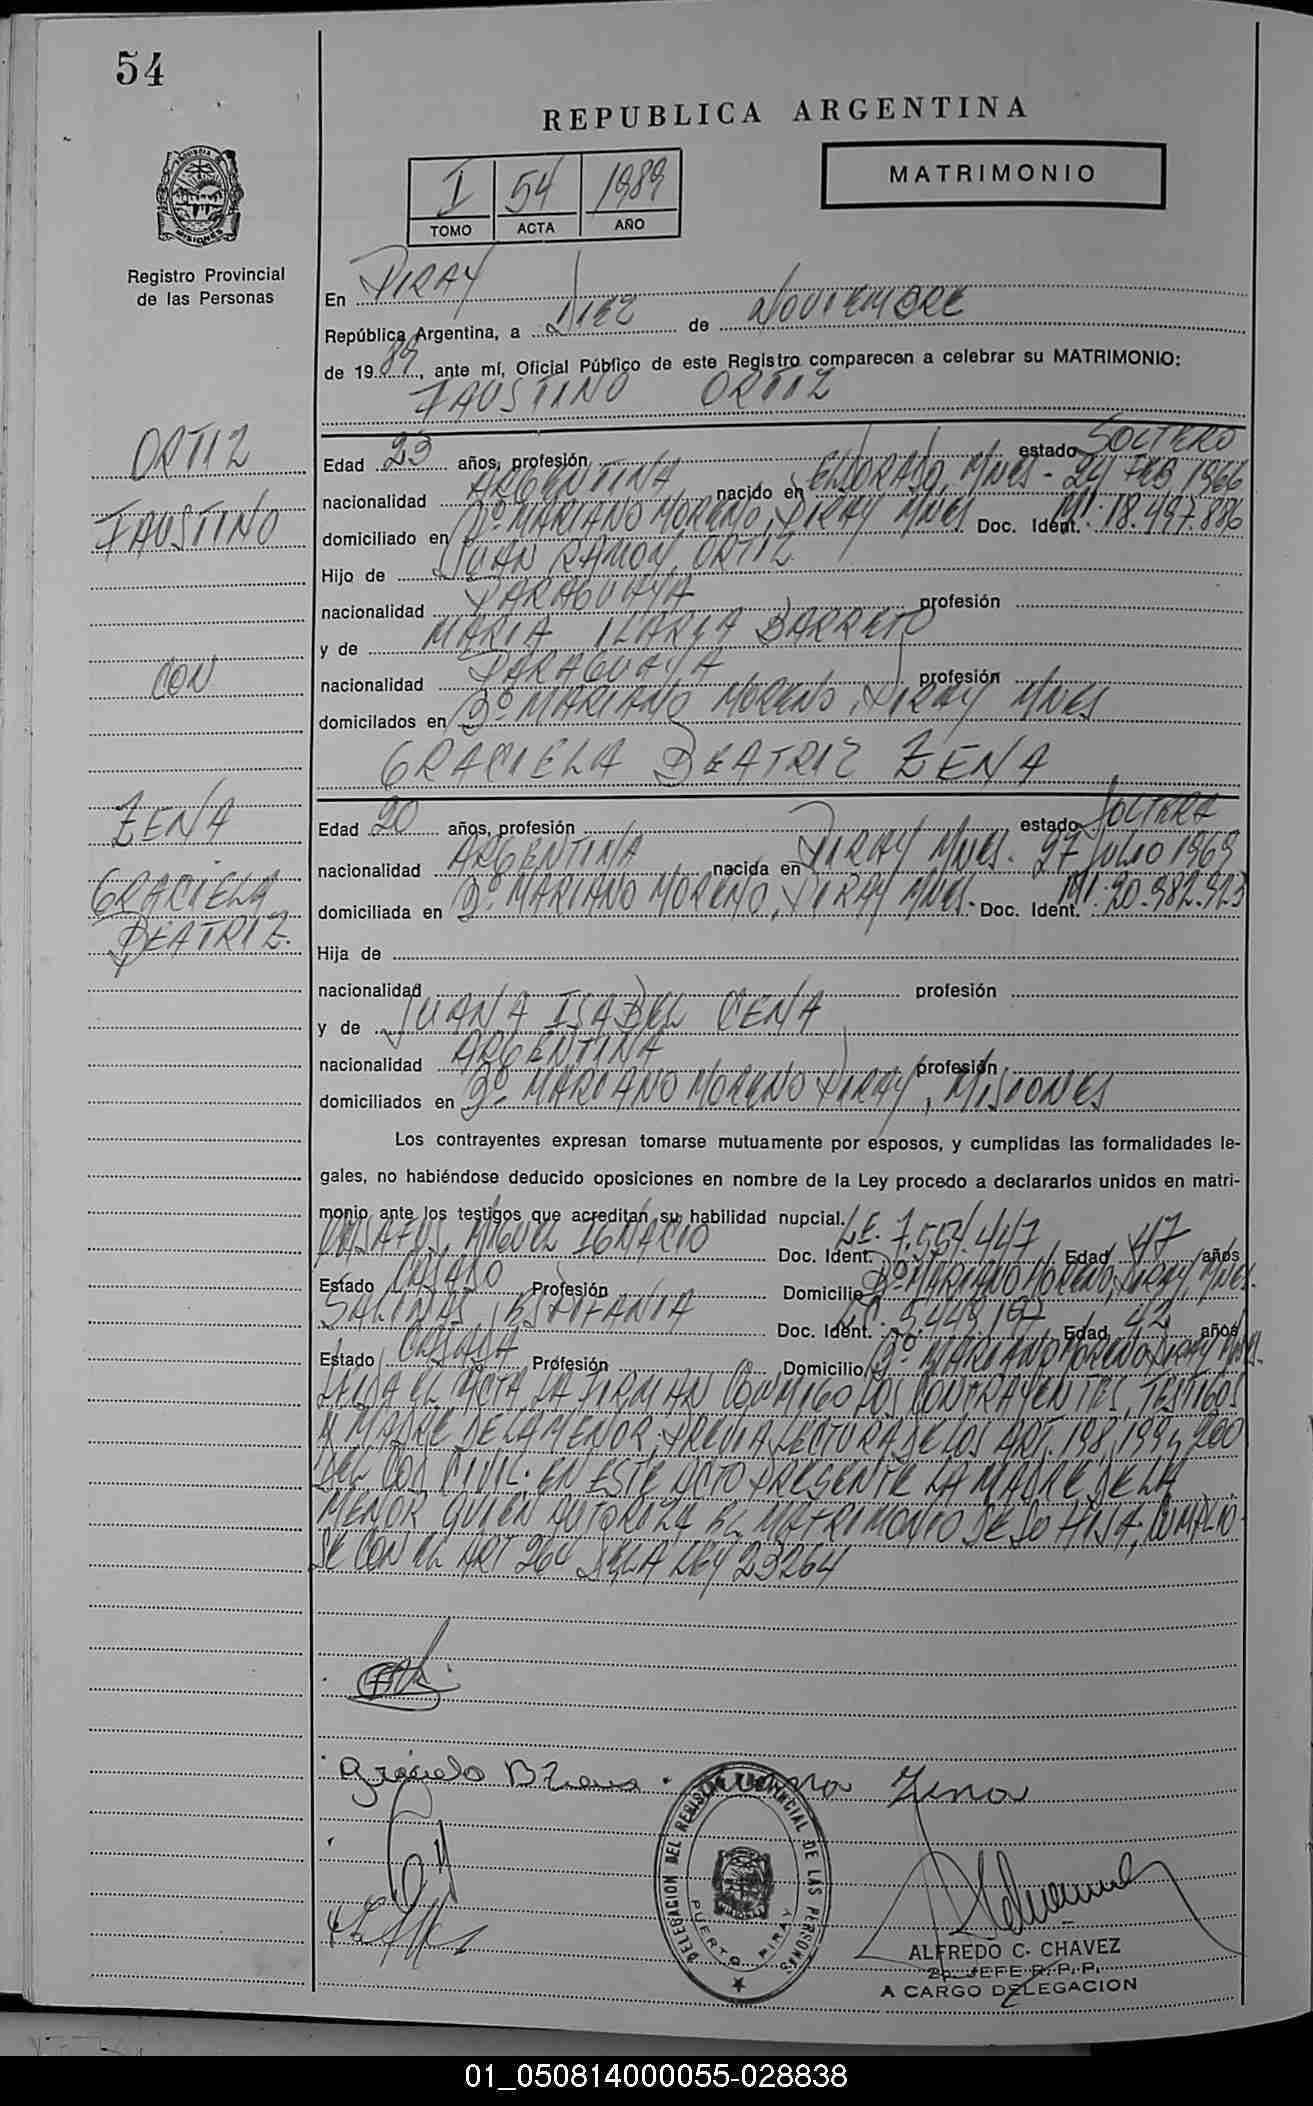 54
REPUBLICA ARGENTINA
MATRIMONIO
I 54 1989
TOMO ACTA AÑO
PROVINCIA DE MISIONES
Registro Provincial
de las Personas
En PIRAY
República Argentina, a DIEZ de NOVIEMBRE
de 1989, ante mí, Oficial Público de este Registro comparecen a celebrar su MATRIMONIO:
FAUSTINO ORTIZ
ORTIZ
FAUSTINO
CON
ZENA
GRACIELA
BEATRIZ.
Edad 23 años, profesión estado SOLTERO
nacionalidad ARGENTINA nacido en ELDORADO, MNES - 24 FEB 1966
domiciliado en Bº MARIANO MORENO, PIRAY MNES Doc. Ident. MI. 18.497.886
Hijo de JUAN RAMON ORTIZ
nacionalidad PARAGUAYA profesión
y de MARIA ILARIA BARRETO
nacionalidad PARAGUAYA profesión
domicilados en Bº MARIANO MORENO, PIRAY MNES
GRACIELA BEATRIZ ZENA
Edad 20 años, profesión estado SOLTERA
nacionalidad ARGENTINA nacida en PIRAY MNES. 27 JULIO 1969
domiciliada en Bº MARIANO MORENO, PIRAY MNES. Doc. Ident. MI. 20.982.923
Hija de
nacionalidad profesión
y de JUANA ISABEL CENA
nacionalidad ARGENTINA profesión
domiciliados en Bº MARIANO MORENO PIRAY, MISIONES
Los contrayentes expresan tomarse mutuamente por esposos, y cumplidas las formalidades le-
gales, no habiéndose deducido oposiciones en nombre de la Ley procedo a declararlos unidos en matri-
monio ante los testigos que acreditan su habilidad nupcial.
MIGUEL IGNACIO Doc. Ident. L.E. 7.554.447 Edad 47 años
Estado CASADO Profesión Domicilio Bº MARIANO MORENO, PIRAY, MNES.
SALINAS, EPIFANIA Doc. Ident. 5448167 Edad 42 años
Estado CASADA Profesión Domicilio Bº MARIANO MORENO PIRAY MNES.
LEIDA EL ACTA, LA FIRMAN CONMIGO LOS CONTRAYENTES, TESTIGOS
Y MADRE DE LA MENOR, PREVIA LECTURA DE LOS ART. 198, 199 y 200
DEL COD CIVIL. EN ESTE ACTO PRESENTE LA MADRE DE LA
MENOR QUIEN AUTORIZA EL MATRIMONIO DE SU HIJA, CUMPLIO-
SE CON EL ART 264 DE LA LEY 23264
Graciela B Zena Juana Zena
DELEGACION DEL REGISTRO PROVINCIAL DE LAS PERSONAS
PUERTO PIRAY
ALFREDO C. CHAVEZ
2o. JEFE R. P. P.
A CARGO DELEGACION
01_050814000055-028838